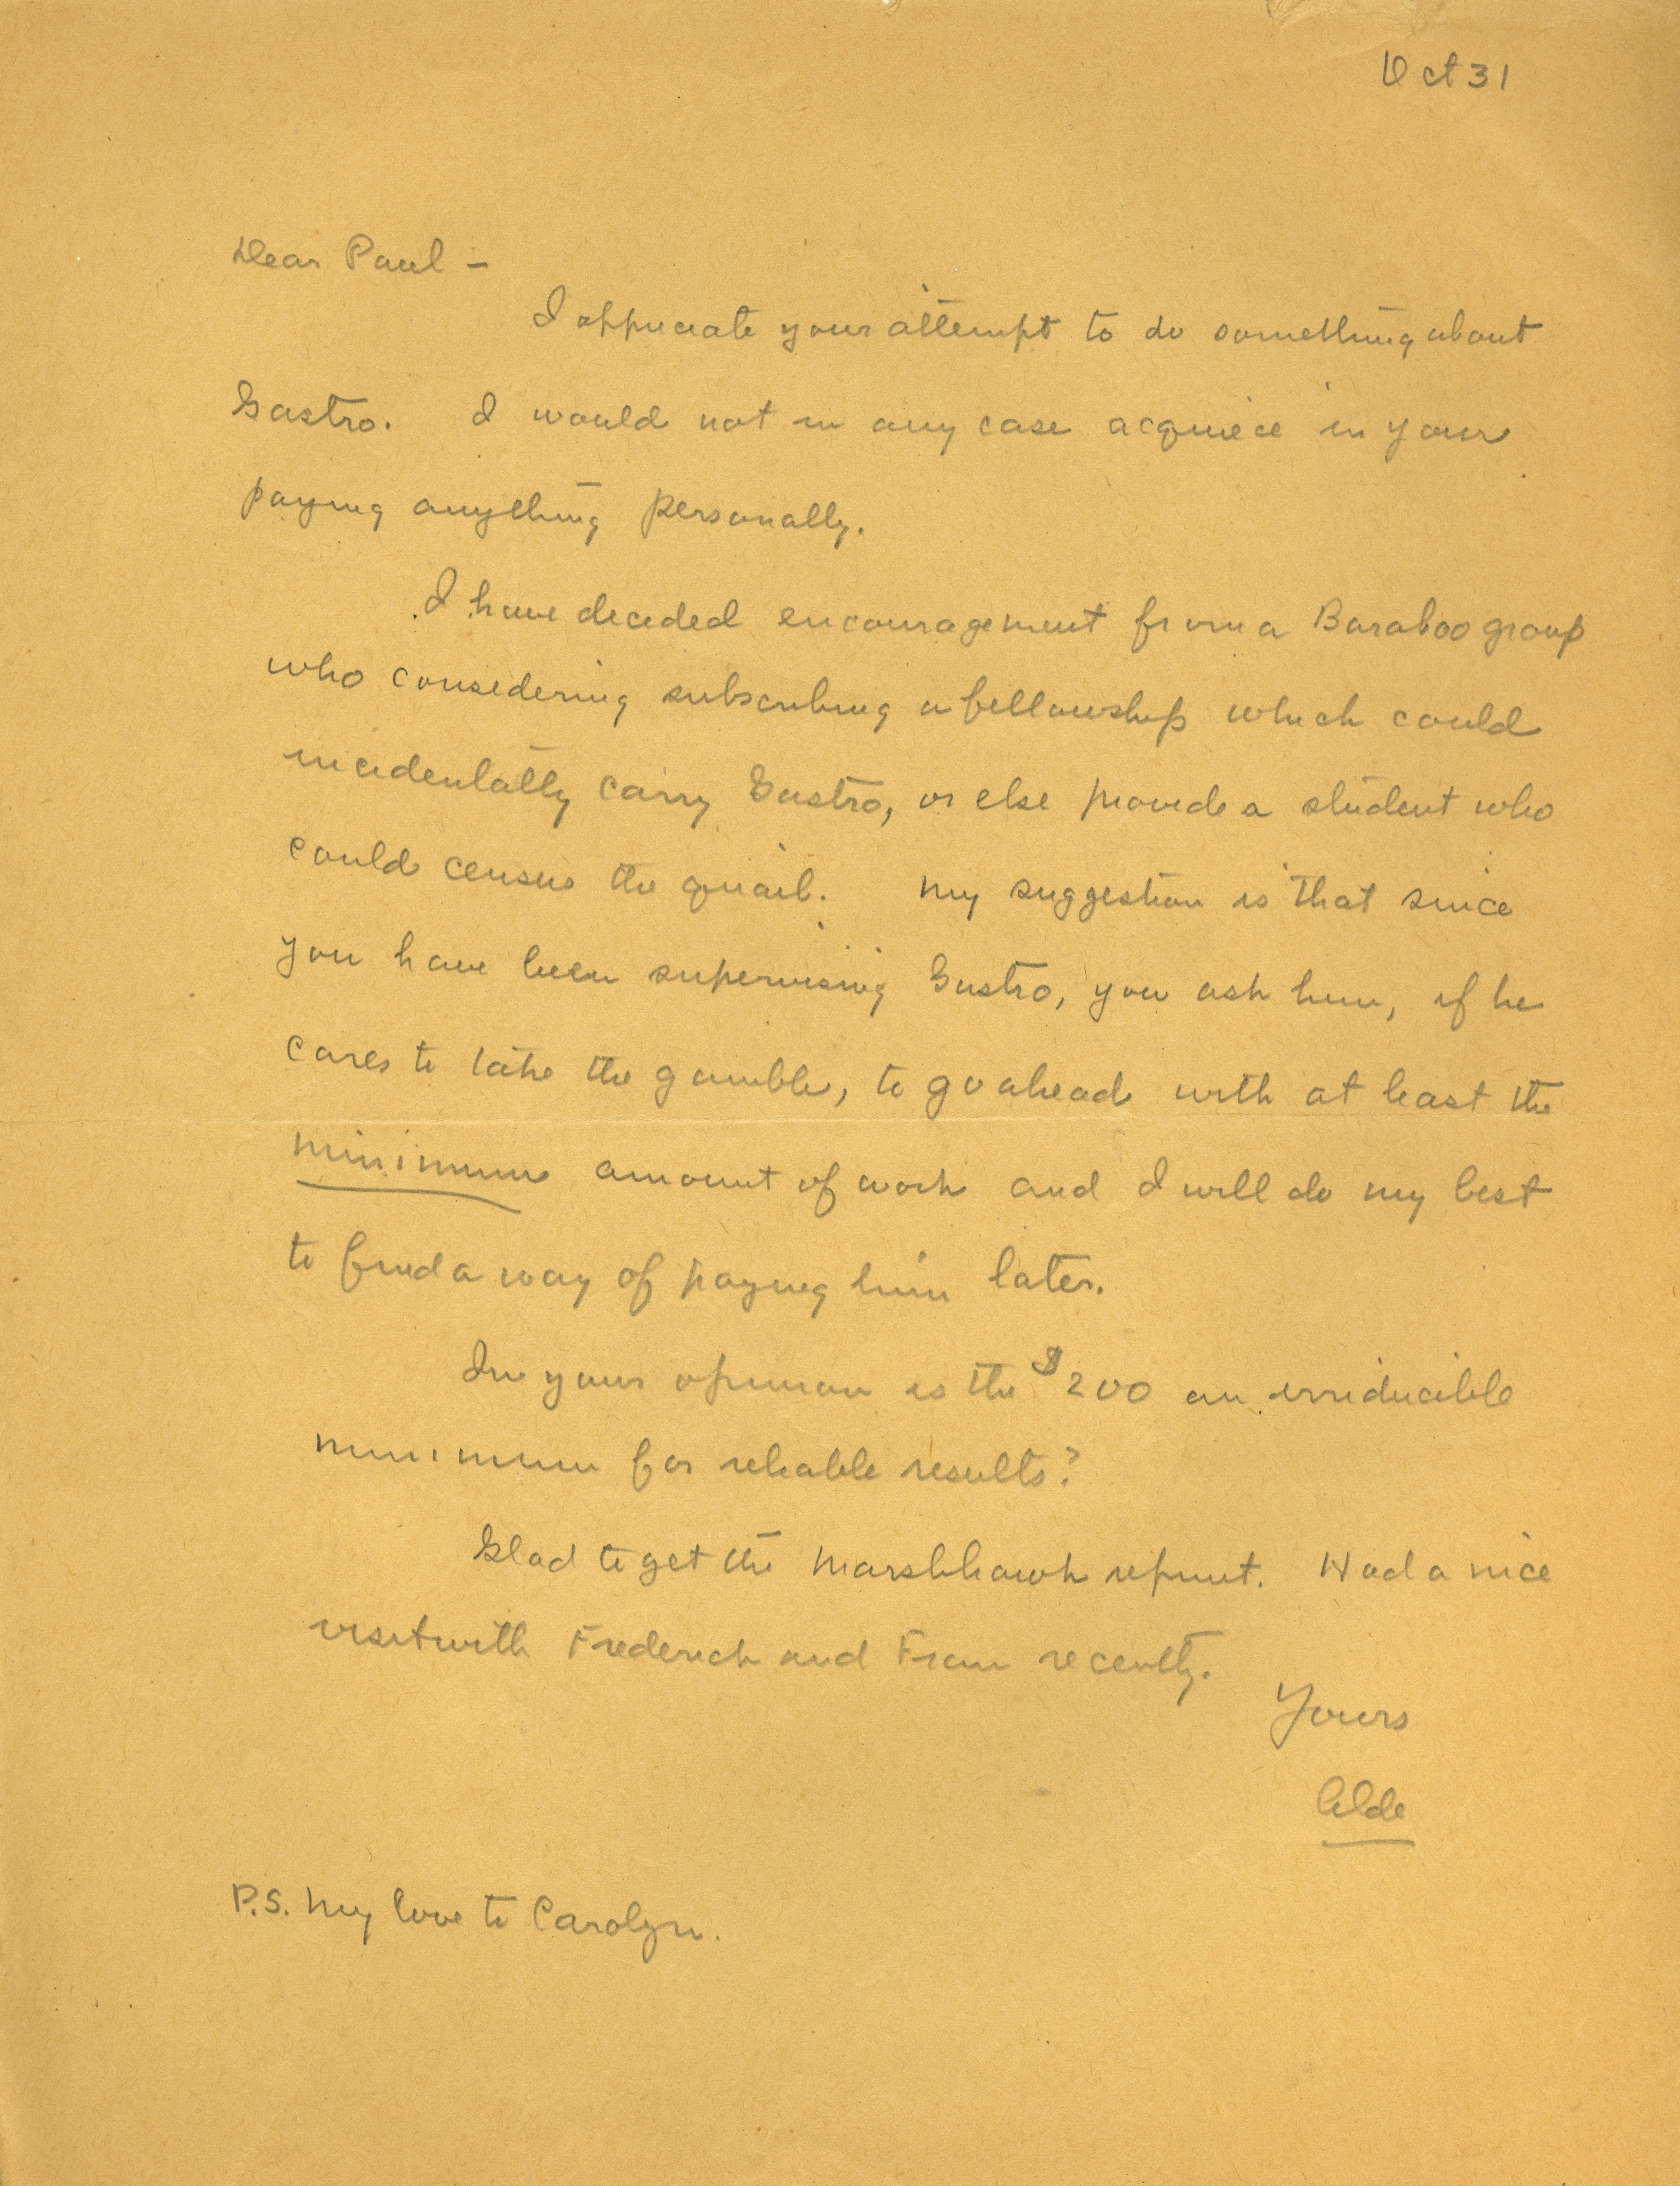 Oct 31
Dear Paul –
I appreciate your attempt to do something about
Gastro. I would not in any case acquiece in your
paying anything personally.
I have decided encouragement from a Baraboo group
who considering subscribing a fellowship which could
incidentally carry Gastro, or else provide a student who
could census the quail. My suggestion is that since
you have been supervising Gastro, you ask him, if he
cares to take the gamble, to go ahead with at least the
minimum amount of work and I will do my best
to find a way of paying him later.
In your opinion is the $200 an irriducible
minimum for reliable results?
Glad to get the Marshhawk reprint. Had a nice
visit with Frederick and Fran recently.
Yours
Aldo
P.S. My love to Carolyn.